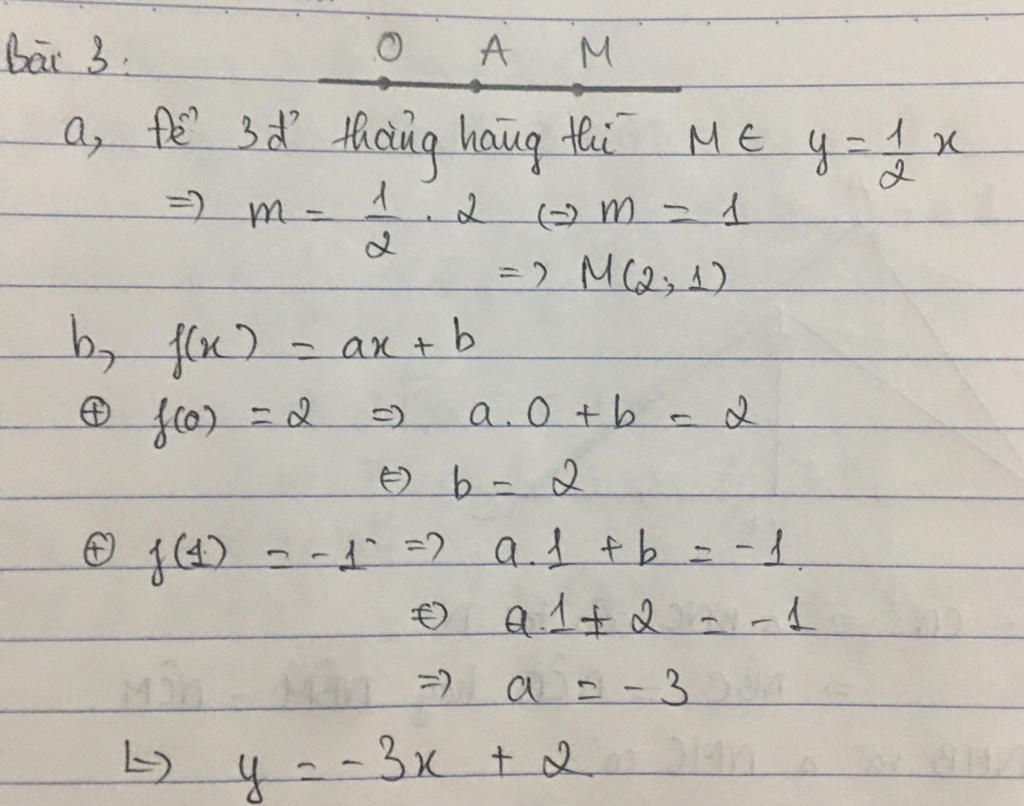 Bài 3: O A M
a, Để 3đ' thẳng hàng thì M ∈ y = 1/2 x
=> m = 1/2 . 2 <=> m = 1
=> M(2; 1)
b, f(x) = ax + b
⊕ f(0) = 2 => a.0 + b = 2
<=> b = 2
⊕ f(1) = -1 => a.1 + b = -1
<=> a.1 + 2 = -1
=> a = -3
↳> y = -3x + 2